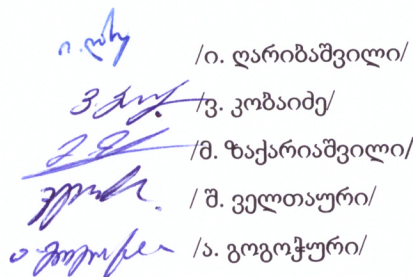 /ი. ღარიბაშვილი/
/ვ. კობაიძე/
/მ. ზაქარიაშვილი/
/ შ. ველთაური/
/ა. გოგოჭური/